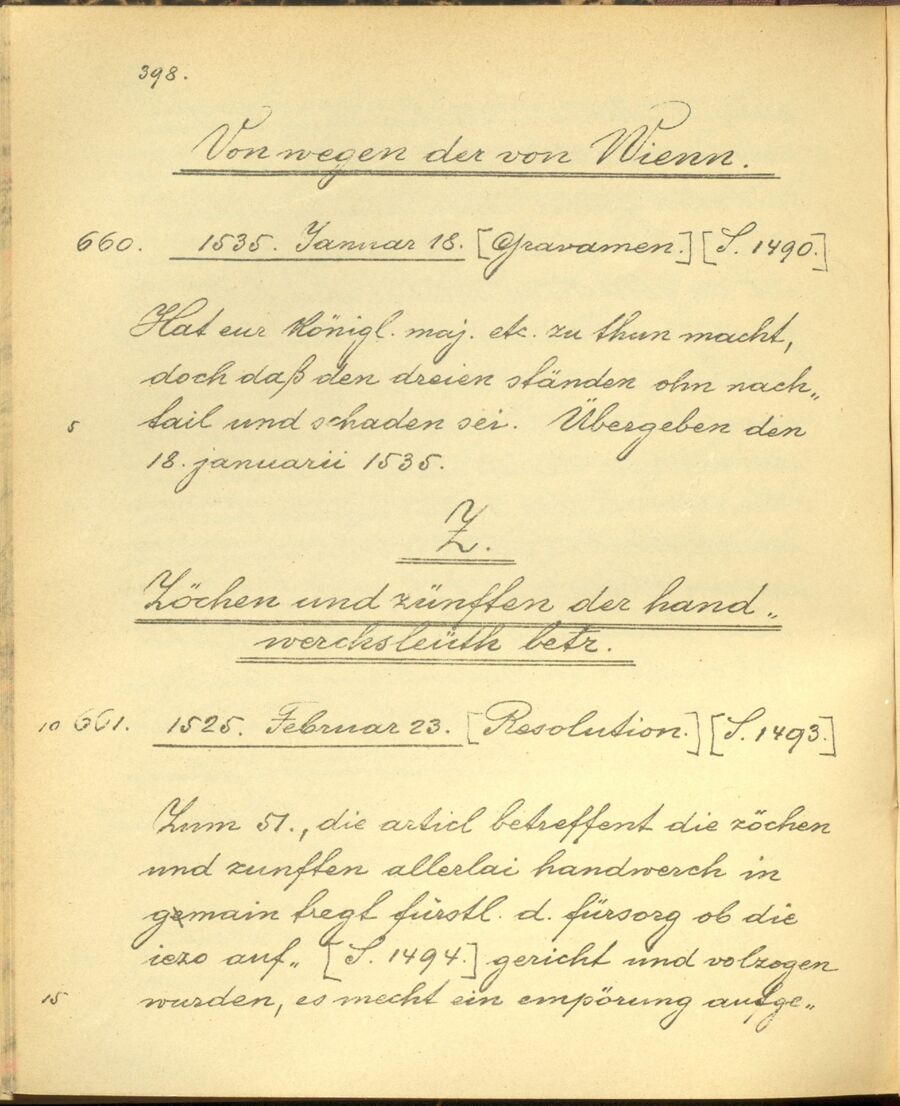 398.
Von wegen der von Wienn.
660. 1535. Januar 18. [Gravamen.] [S. 1490.]
Hat eur königl. maj. etc. zu thun macht,
doch daß den dreien ständen ohn nach„
5 tail und schaden sei. Übergeben den
18. januarii 1535.
Z.
Zöchen und zünfften der hand„
wercksleüth betr.
10 661. 1525. Februar 23. [Resolution.] [S. 1493.]
Zum 51., die articl betreffent die zöchen
und zunfften allerlai handwerch in
gemain tregt fürstl. d. fürsorg ob die
iezo auf„ [S. 1494.] gericht und volzogen
15 wurden, es mecht ein empörung aufge„